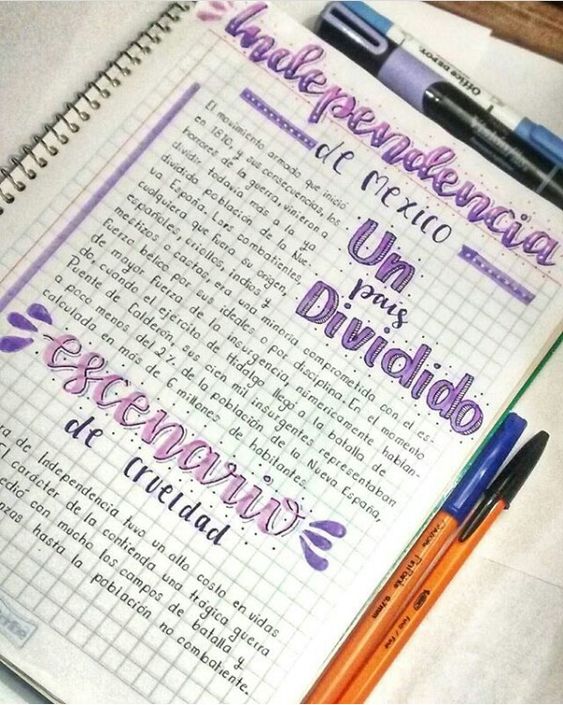 Independencia
de MEXICO
Un
país
Dividido
El movimiento armado que inició
en 1810, y sus consecuencias, los
horrores de la guerra, vinieron a
dividir todavía más a la ya
dividida población de la Nue
va España. Lars combatientes
cualquiera que fuera su origen,
españoles, criollos, indios y
mestizos o castas, era una minoría comprometida con el es-
fuerzo bélico por sus ideales o por disciplina. En el momento
de mayor fuerza de la insurgencia, numéricamente hablan-
do, cuando el ejército de Hidalgo llegó a la batalla de
Puente de Calderón, sus cien mil insurgentes representaban
a poco menos del 2% de la población de la Nueva España,
calculada en más de 6 millones de habitantes.
escenario
de crueldad
ra de Independencia tuvo un alto costo en vidas
El carácter de la contienda una trágica guerra
edió con mucho los campos de batalla y
nzas hasta la población no combatiente.
Office DEPOT